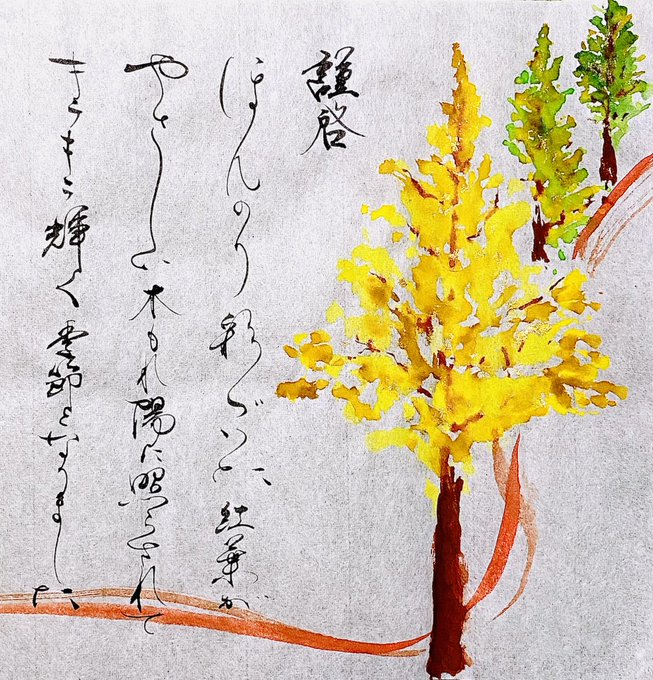 謹啓
ほんのり彩づいた紅葉が
やさしい木もれ陽に照らされて
きらきら輝く季節となりました